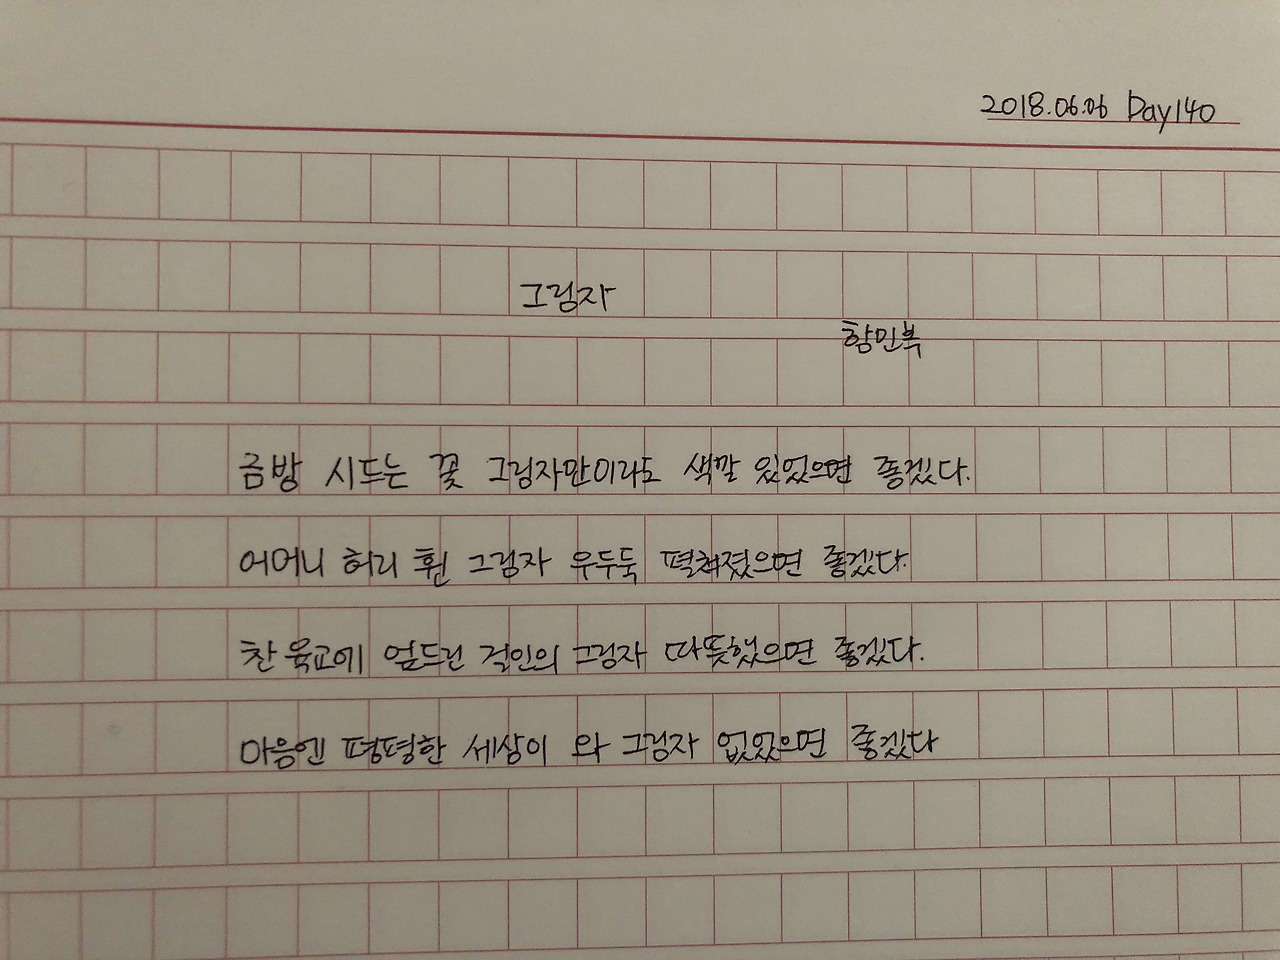 2018.06.06 Day140
그림자
함민복
금방 시드는 꽃 그림자만이라도 색깔 있었으면 좋겠다.
어머니 허리 휜 그림자 우두둑 펼쳐졌으면 좋겠다.
찬 육교에 엎드린 걸인의 그림자 따뜻했으면 좋겠다.
마음엔 평평한 세상이 와 그림자 없었으면 좋겠다